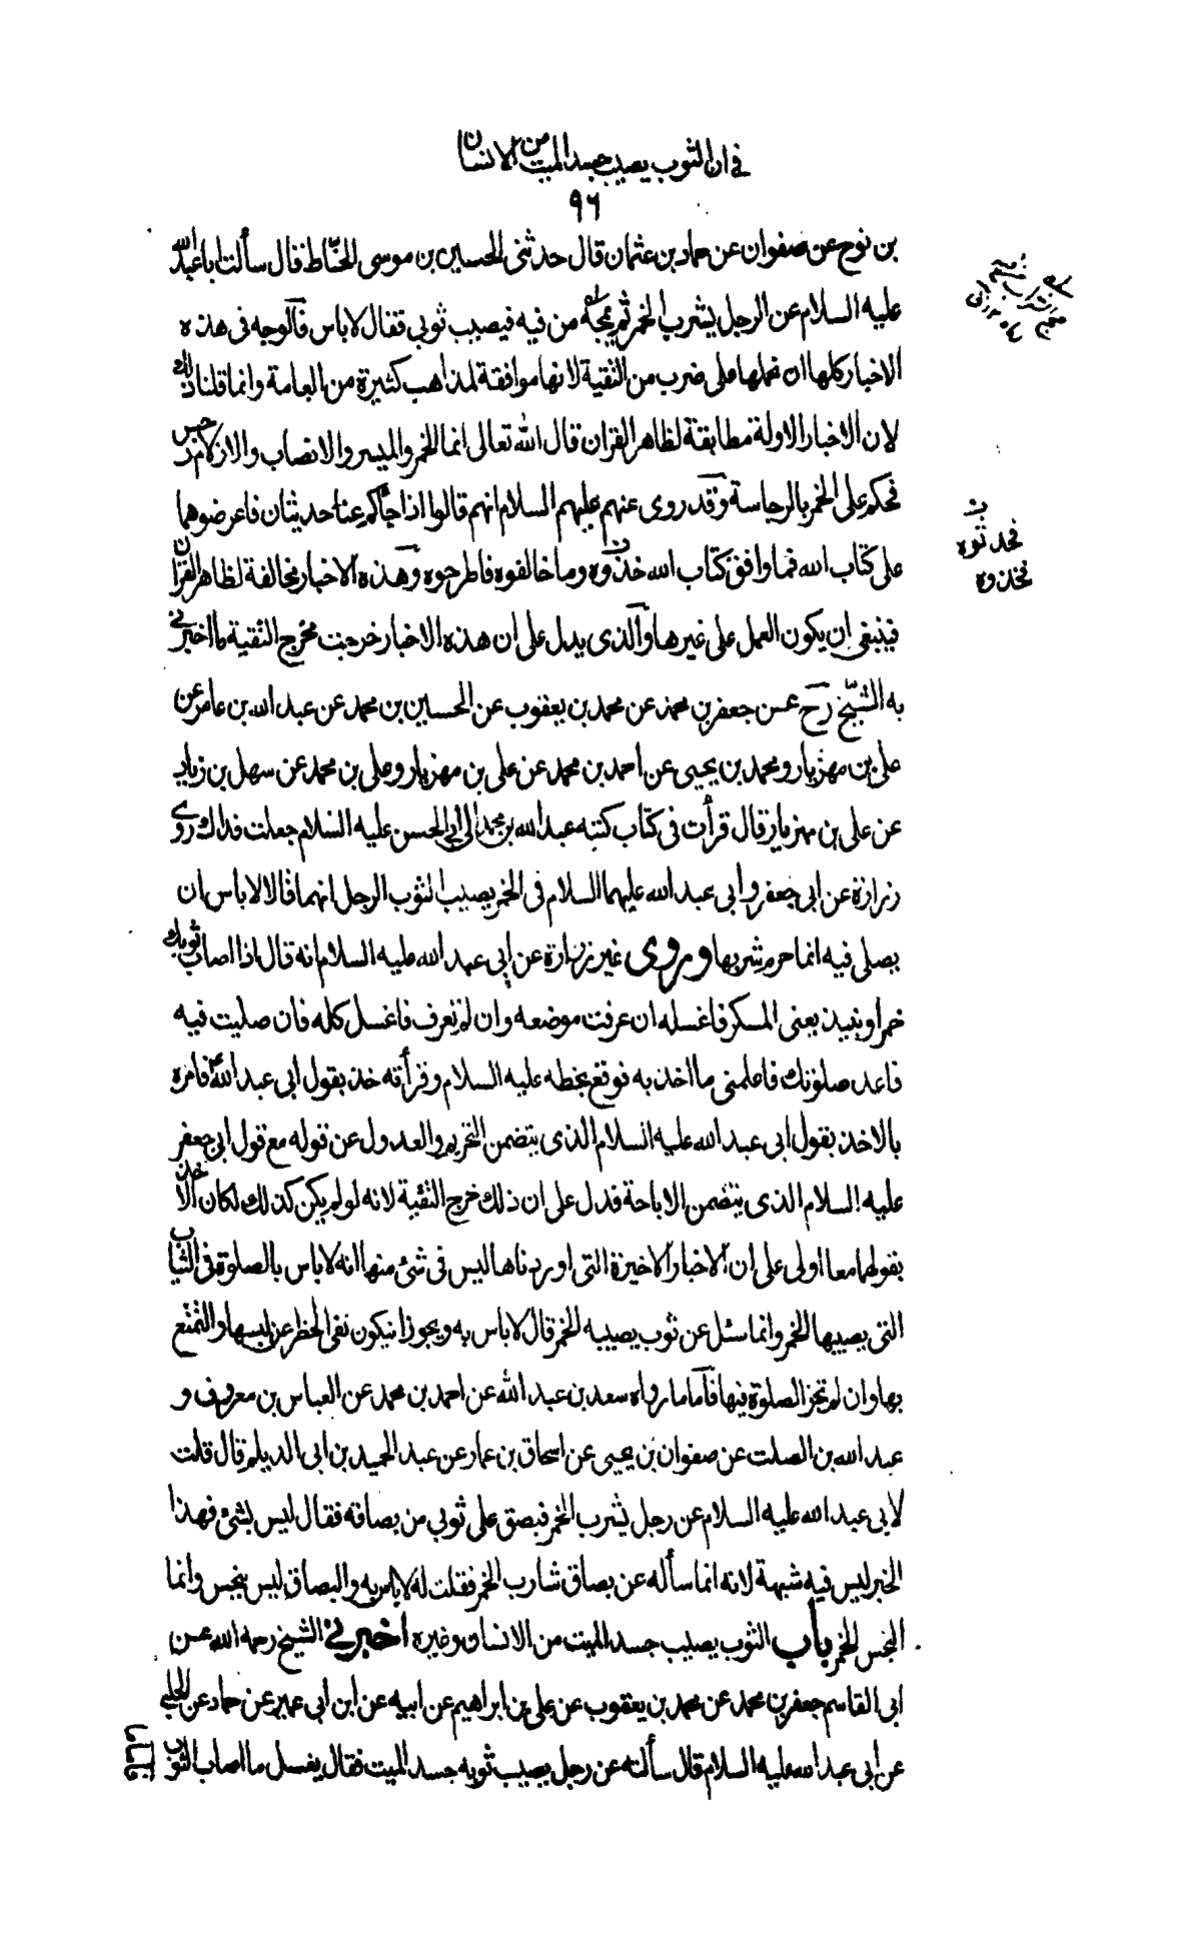 في ان الثوب يصيب جسد الميت من الانسان
٩٦
بن نوح عن صفوان عن حماد بن عثمان قال حدثنى الحسين بن موسى الحناط قال سألت ابا عبد الله
عليه السلام عن الرجل يشرب الخمر ثم يمجه من فيه فيصيب ثوبى فقال لا باس فالوجه فى هذه
الاخبار كلها ان نحملها على ضرب من التقية لانها موافقة لمذاهب كثيرة من العامة وانما قلنا ذلك
لان الاخبار الاولة مطابقة لظاهر القران قال الله تعالى انما الخمر والميسر والانصاب والازلام رجس
فحكم على الخمر بالرجاسة وقد روى عنهم عليهم السلام انهم قالوا اذا جائكم عنا حديثان فاعرضوهما
على كتاب الله فما وافق كتاب الله خذوه وما خالفوه فاطرحوه وهذه الاخبار مخالفة لظاهر القران
فينبغى ان يكون العمل على غيرها والذى يدل على ان هذه الاخبار خرجت مخرج التقية ما اخبرنى
به الشيخ رح عن جعفر بن محمد عن محمد بن يعقوب عن الحسين بن محمد عن عبد الله بن عامر عن
على بن مهزيار ومحمد بن يحيى عن احمد بن محمد عن على بن مهزيار وعلى بن محمد عن سهل بن زياد
عن على بن مهزيار قال قرأت فى كتاب كتبه عبد الله بن محمد الى ابى الحسن عليه السلام جعلت فداك روى
زرارة عن ابى جعفر وابى عبد الله عليهما السلام فى الخمر يصيب الثوب الرجل انهما قالا لا باس ان
يصلى فيه انما حرم شربها وروى غير زرارة عن ابى عبد الله عليه السلام انه قال اذا اصاب ثوبك
خمر او نبيذ يعنى المسكر فاغسله ان عرفت موضعه وان لم تعرف فاغسل كله فان صليت فيه
فاعد صلوتك فاعلمنى ما اخذ به فوقع بخطه عليه السلام وقرأته خذ بقول ابى عبد الله ع فامره
بالاخذ بقول ابى عبد الله عليه السلام الذى يتضمن التحريم والعدول عن قوله مع قول ابى جعفر
عليه السلام الذى يتضمن الاباحة فدل على ان ذلك خرج التقية لانه لو لم يكن كذلك لكان الاخذ
بقولهما معا اولى على ان الاخبار الاخيرة التى اوردناها ليس فى شئ منها انه لا باس بالصلوة فى الثياب
التى يصيبها الخمر وانما سئل عن ثوب يصيبه الخمر قال لا باس به ويجوز ان يكون نفى الحظر عن لبسها والتمتع
بها وان لم تجز الصلوة فيها فاما ما رواه سعد بن عبد الله عن احمد بن محمد عن العباس بن معروف و
عبد الله بن الصلت عن صفوان بن يحيى عن اسحاق بن عمار عن عبد الحميد بن ابى الديلم قال قلت
لابى عبد الله عليه السلام عن رجل يشرب الخمر فبصق على ثوبى من بصاقه فقال ليس بشئ فهذا
الخبر ليس فيه شبهة لانه انما سأله عن بصاق شارب الخمر فقلت له لا باس به والبصاق ليس بنجس وانما
النجس الخمر باب الثوب يصيب جسد الميت من الانسان وغيره اخبرنى الشيخ رحمه الله عن
ابى القاسم جعفر بن محمد عن محمد بن يعقوب عن على بن ابراهيم عن ابيه عن ابن ابى عمير عن حماد عن الحلبى
عن ابى عبد الله عليه السلام قال سألته عن رجل يصيب ثوبه جسد الميت فقال يغسل ما اصاب الثوب